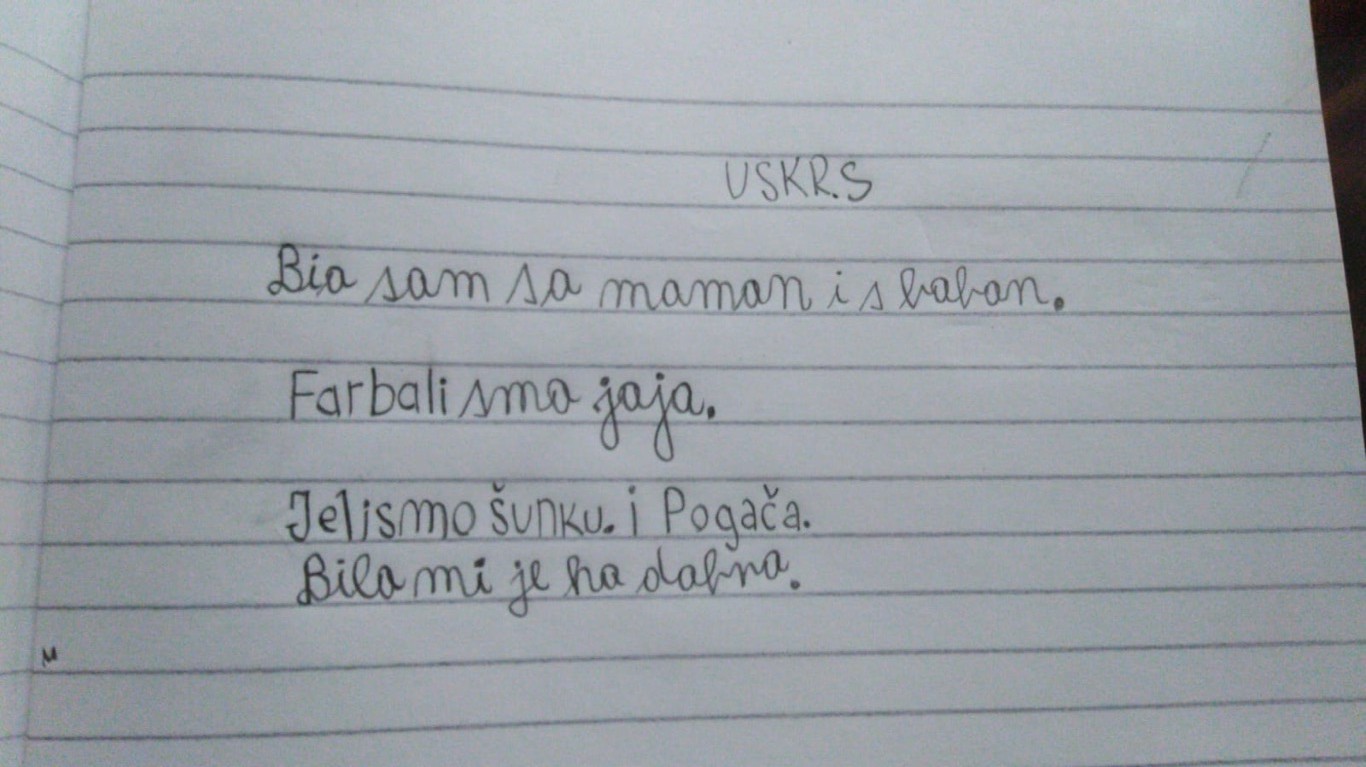 USKR.S
Bia sam sa maman i s baban.
Farbali smo jaja.
Jelismo šunku. i Pogača.
Bilo mi je ha dabra.
M